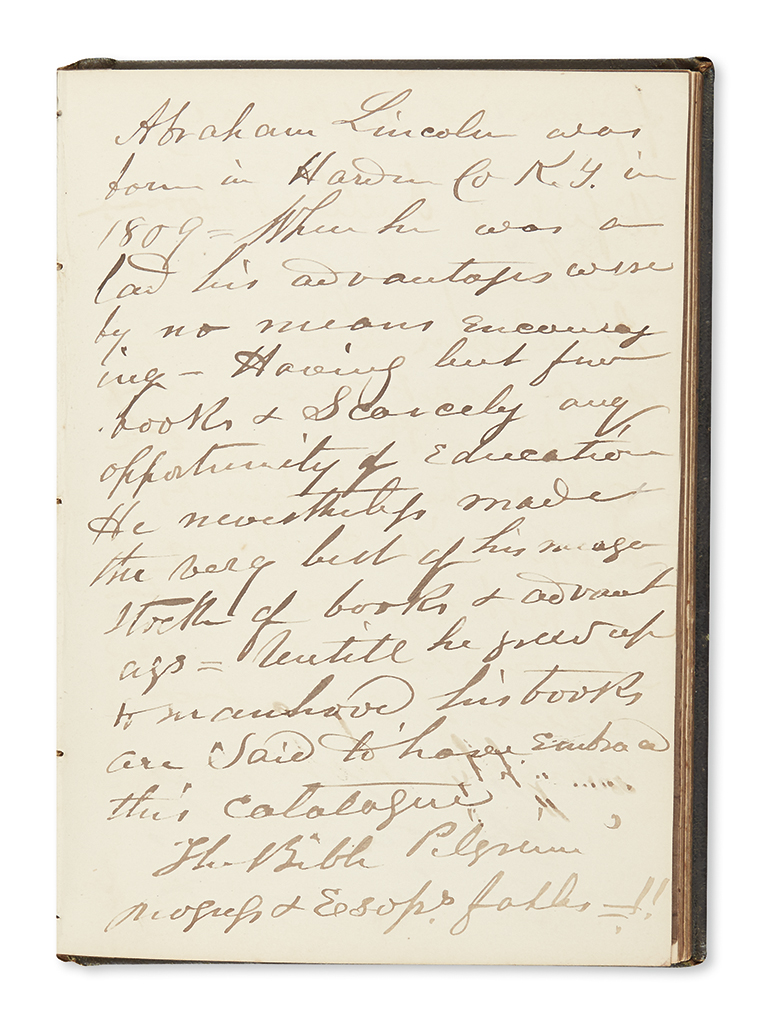 Abraham Lincoln was
born in Hardin Co K.Y. in
1809 = When he was a
lad his advantages were
by no means Encourag
ing – Having but few
books & Scarcely any
opportunity of Education
He nevertheless made
the very best of his meager
stock of books & advant
ages = Untill he grew up
to manhood his books
are "Said to" have Embraced
this catalogue
The Bible Pilgrim
progress & Esops. fables =!!